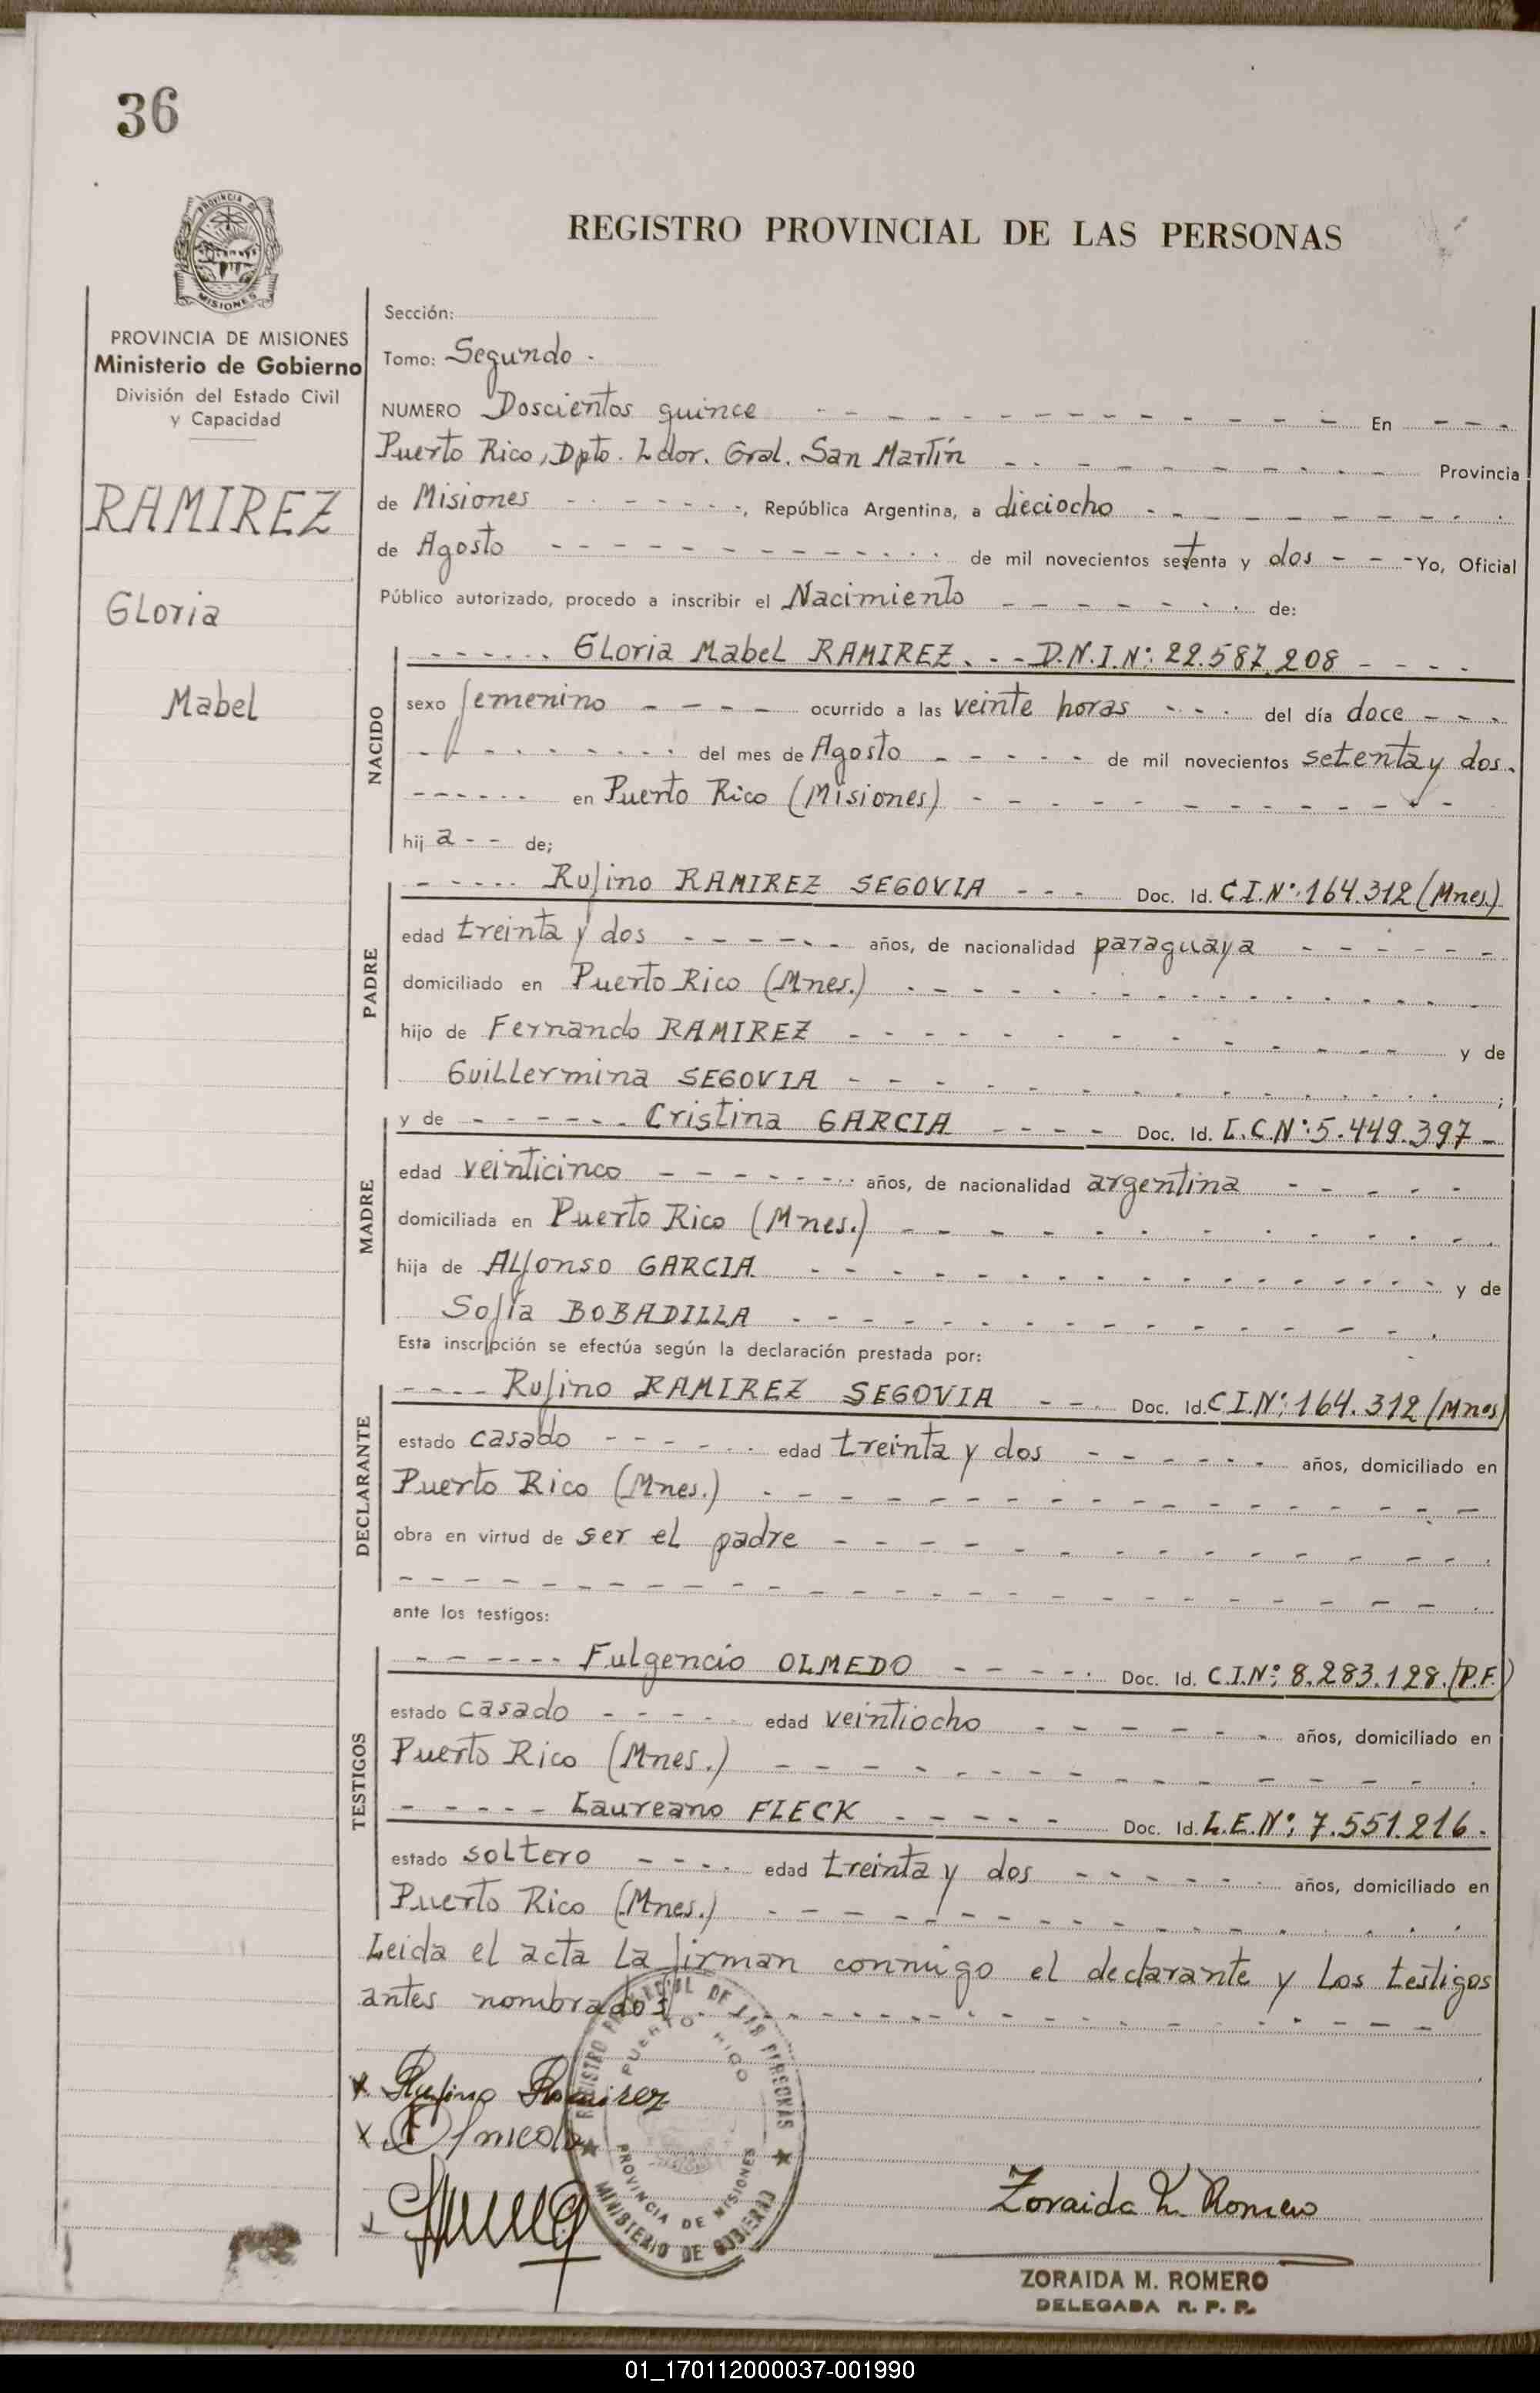 36
PROVINCIA DE
MISIONES
REGISTRO PROVINCIAL DE LAS PERSONAS
PROVINCIA DE MISIONES
Ministerio de Gobierno
División del Estado Civil
y Capacidad
RAMIREZ
Gloria
Mabel
Sección:
Tomo: Segundo.
NUMERO Doscientos quince En
Puerto Rico, Dpto. Ldor. Gral. San Martín Provincia
de Misiones, República Argentina, a dieciocho
de Agosto de mil novecientos setenta y dos Yo, Oficial
Público autorizado, procedo a inscribir el Nacimiento de:
NACIDO
Gloria Mabel RAMIREZ. D.N.I.N°: 22.587.208
sexo femenino ocurrido a las veinte horas del día doce
del mes de Agosto de mil novecientos setenta y dos.
en Puerto Rico (Misiones)
hij a de;
PADRE
Rufino RAMIREZ SEGOVIA Doc. Id. C.I.N°: 164.312 (Mnes.)
edad treinta y dos años, de nacionalidad paraguaya
domiciliado en Puerto Rico (Mnes.)
hijo de Fernando RAMIREZ y de
Guillermina SEGOVIA ;
MADRE
y de Cristina GARCIA Doc. Id. L.C.N°: 5.449.397
edad veinticinco años, de nacionalidad argentina
domiciliada en Puerto Rico (Mnes.)
hija de Alfonso GARCIA y de
Sofía BOBADILLA
Esta inscripción se efectúa según la declaración prestada por:
DECLARANTE
Rufino RAMIREZ SEGOVIA Doc. Id. C.I.N°: 164.312 (Mnes)
estado casado edad treinta y dos años, domiciliado en
Puerto Rico (Mnes.)
obra en virtud de ser el padre
ante los testigos:
TESTIGOS
Fulgencio OLMEDO Doc. Id. C.I.N°: 8.283.128. (P.F.)
estado casado edad veintiocho años, domiciliado en
Puerto Rico (Mnes.)
Laureano FLECK Doc. Id. L.E.N°: 7.551.216.
estado soltero edad treinta y dos años, domiciliado en
Puerto Rico (Mnes.)
Leida el acta la firman conmigo el declarante y los testigos
antes nombrados
x Rufino Ramirez
x Olmedo
REGISTRO PROVINCIAL DE LAS PERSONAS
PUERTO RICO
PROVINCIA DE MISIONES
MINISTERIO DE GOBIERNO
Zoraida M. Romero
ZORAIDA M. ROMERO
DELEGADA R. P. P.
01_170112000037-001990